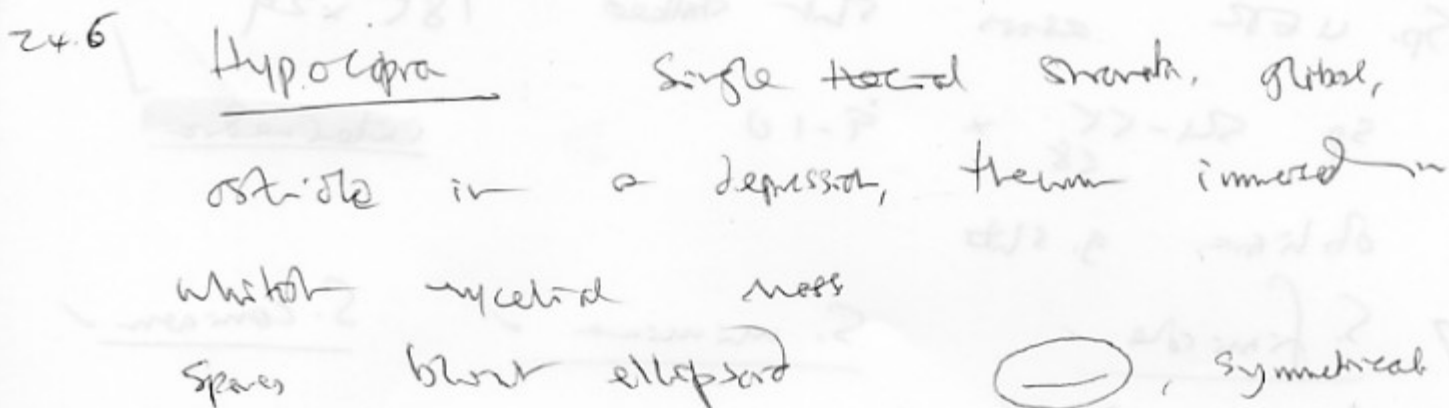 24.6 Hypocopra Single thecial stromata, globose,
ostiole in a depression, immersed in
whitish mycelial mass
Spores blunt ellipsoid , symmetrical